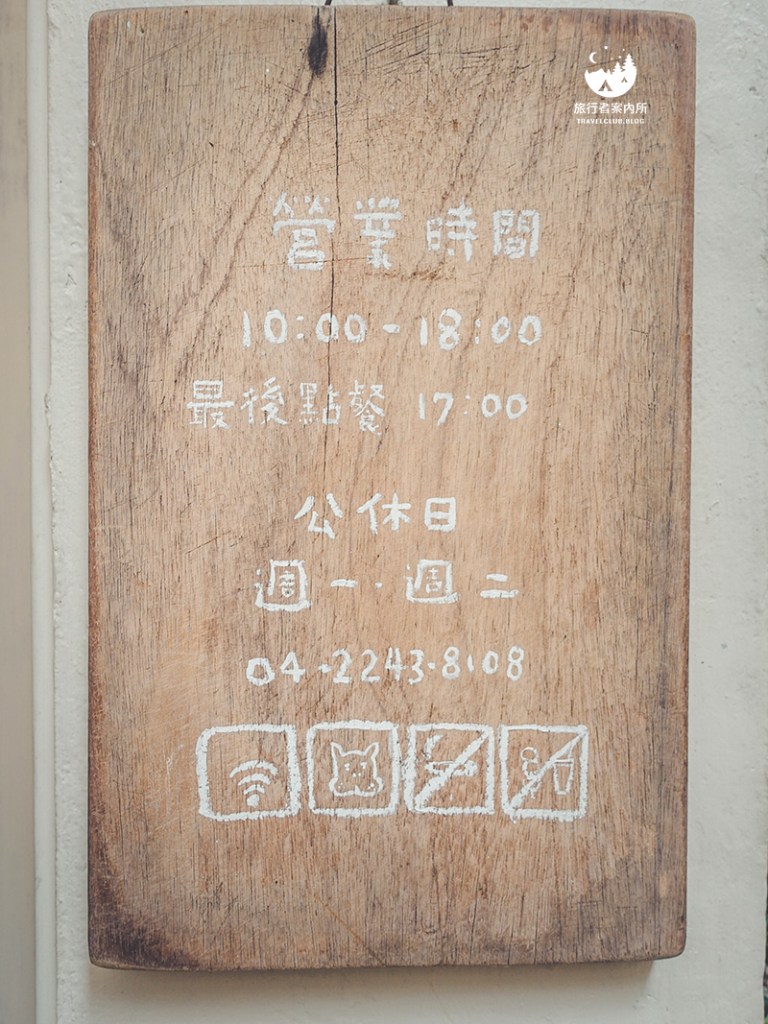 旅行者案內所
TRAVELCLUB.BLOG
營業時間
10:00-18:00
最後點餐 17:00
公休日
週一·週二
04-2243-8108